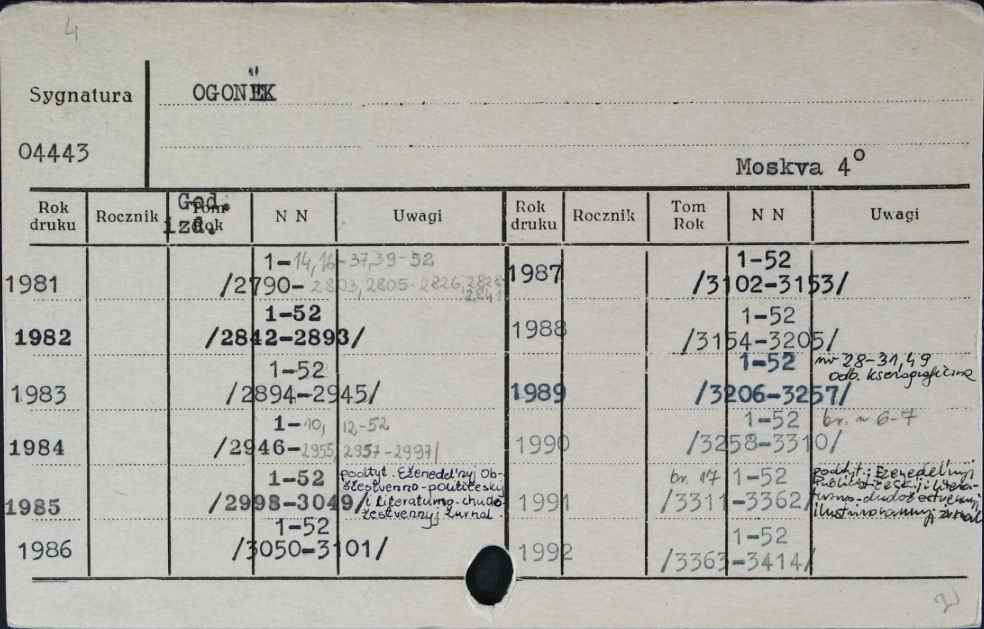 4
Sygnatura OGONËK
04443
Moskva 4°
Rok druku Rocznik God. izd. Tom Rok N N Uwagi Rok druku Rocznik Tom Rok N N Uwagi
1981 1-14,16-37,39-52
/2790-2803,2805-2826,2828-2841
1982 1-52
/2842-2893/
1983 1-52
/2894-2945/
1984 1-10, 12-52
/2946-2955, 2957-2997/
1985 1-52
/2998-3049/
podtyt. Eženedel'nyj ob-
ščestvenno-političeskij
i literaturno-chudo-
žestvennyj žurnal.
1986 1-52
/3050-3101/
1987 1-52
/3102-3153/
1988 1-52
/3154-3205/
1989 1-52
/3206-3257/
nr 28-31,49
odb. kserograficzne
1990 1-52
/3258-3310/
br. nr 6-7
1991 br. 17 1-52
/3311-3362/
podtyt.: Eženedel'nyj
ilustrirovannyj žurnal
1992 1-52
/3363-3414/